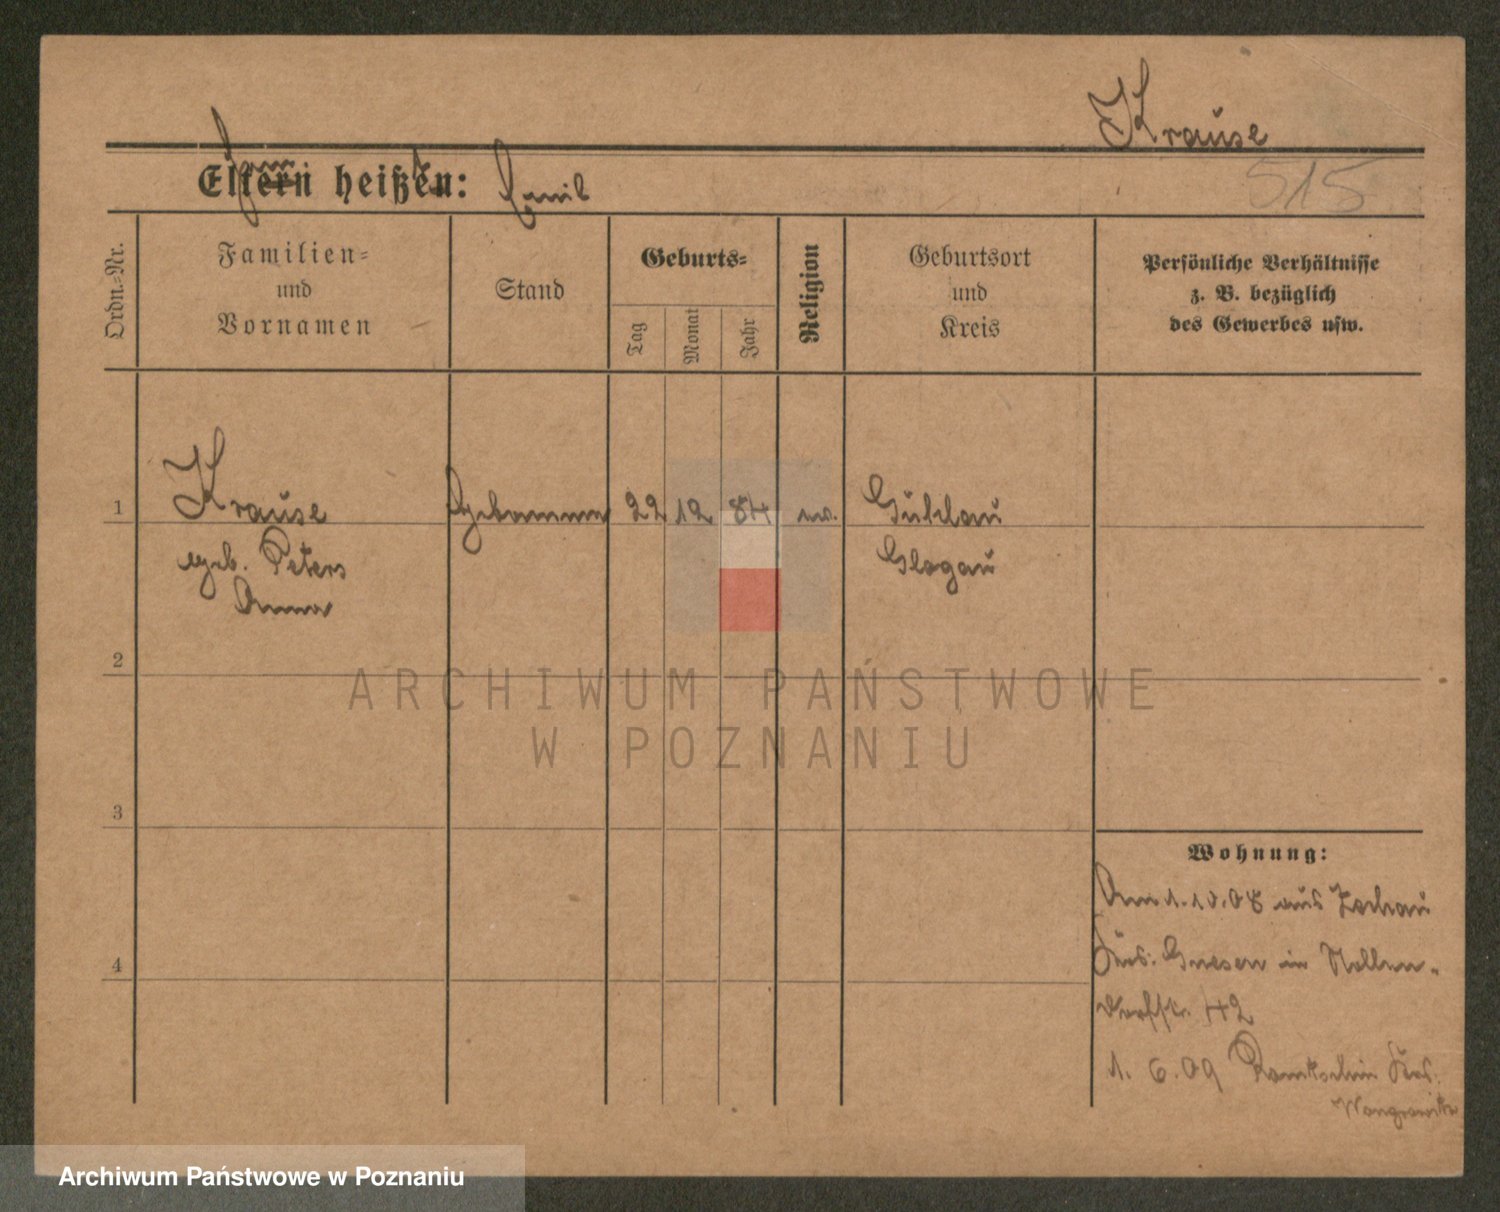 Krause
515
Eltern heißen: Emil
Ordn.-Nr.
Familien-
und
Vornamen
Stand
Geburts-
Tag
Monat
Jahr
Religion
Geburtsort
und
Kreis
Persönliche Verhältnisse
z. B. bezüglich
des Gewerbes usw.
1
Krause
22 12 84
Gühlau
geb. Peters
Glogau
Anna
2
ARCHIWUM PAŃSTWOWE
W POZNANIU
3
Wohnung:
Am 1.10.08 aus
4
Krs. Gnesen in Nollen-
dorfstr. 42
1. 6. 09 Krs.
Wongrowitz
Archiwum Państwowe w Poznaniu